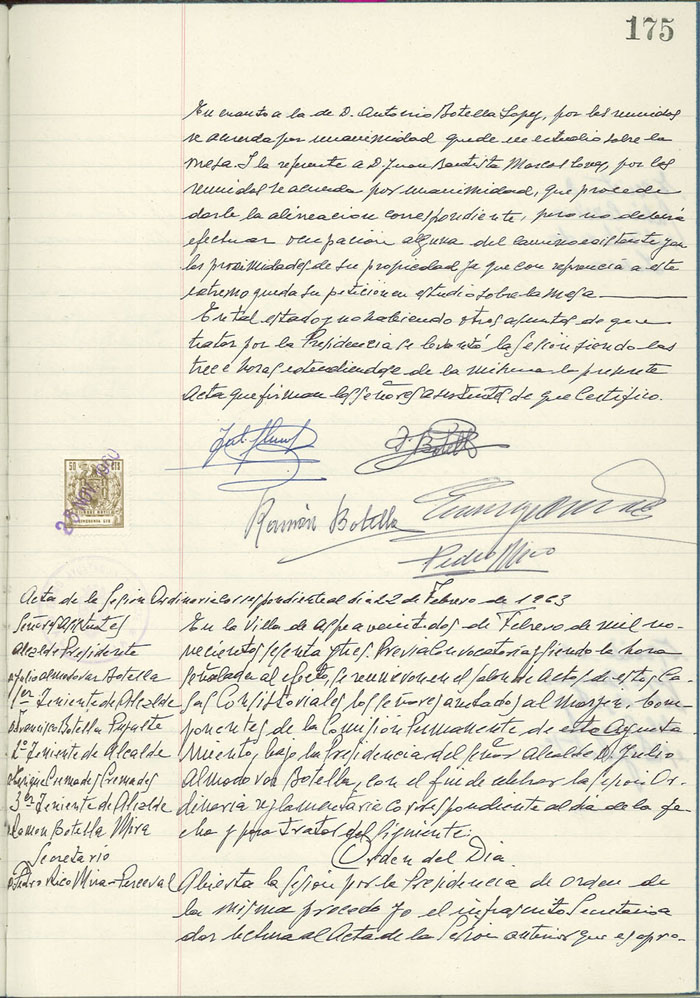 175
En cuanto a la de D. Antonio Botella Lopez, por los reunidos
se acuerda por unanimidad quede en estudio sobre la
mesa. Y la referente a D. Juan Bautista Marcos Lovez, por los
reunidos se acuerda por unanimidad, que procede
darle la alineacion correspondiente, pero no deberá
efectuar ocupación alguna del camino existente por
las proximidades de su propiedad ya que con referencia a este
extremo queda su peticion en estudio sobre la mesa
En tal estado y no habiendo otros asuntos de que
tratar por la Presidencia se levantó la Sesión siendo las
trece horas extendiendose de la misma la presente
Acta que firman los señores asistentes de que Certifico.
J. Botella
Ramón Botella
Pedro Mico
50 CTS
28 NOV 1960
Acta de la Sesion Ordinaria correspondiente al dia 22 de Febrero de 1963
Señores Asistentes
Alcalde Presidente
D. Julio Almodovar Botella
1er Teniente de Alcalde
D. Francisco Botella
2º Teniente de Alcalde
D. Enrique Cremades Cremades
3er Teniente de Alcalde
D. Ramon Botella Mira
Secretario
D. Pedro Rico Mira-Perceval
En la Villa de Aspe a veintidos de Febrero de mil no-
vecientos sesenta y tres. Previa Convocatoria y siendo la hora
señalada al efecto, se reunieron en el salon de Actos de estas Ca-
sas Consistoriales los señores anotados al margen com-
ponentes de la Comisión Permanente de este Ayunta-
miento, bajo la Presidencia del señor Alcalde D. Julio
Almodovar Botella, con el fin de celebrar la sesion Or-
dinaria reglamentaria correspondiente al dia de la fe-
cha y para tratar del siguiente:
Orden del Dia.
Abierta la Sesión por la Presidencia de orden de
la misma procedo yo el infrascrito Secretario a
dar lectura al Acta de la Sesion anterior que es apro-